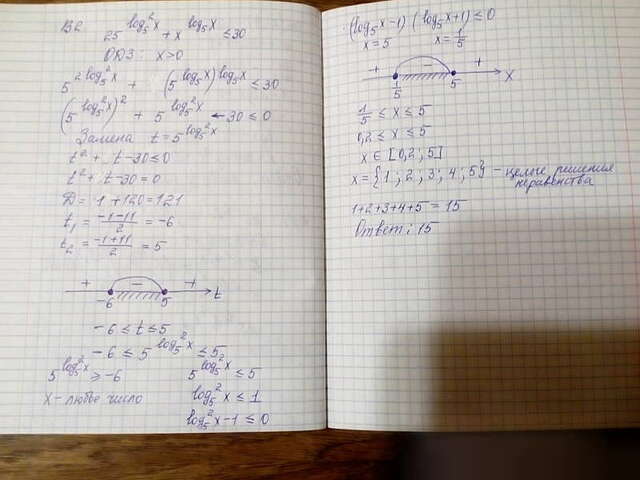 В2 25^(log₅²x) + x^(log₅x) ≤ 30
ОДЗ: x > 0
5^(2log₅²x) + (5^(log₅x))^(log₅x) ≤ 30
(5^(log₅²x))² + 5^(log₅²x) - 30 ≤ 0
Замена t = 5^(log₅²x)
t² + t - 30 ≤ 0
t² + t - 30 = 0
D = 1 + 120 = 121
t₁ = (-1-11)/2 = -6
t₂ = (-1+11)/2 = 5
+ - +
-6 5 t
-6 ≤ t ≤ 5
-6 ≤ 5^(log₅²x) ≤ 5
5^(log₅²x) ≥ -6 5^(log₅²x) ≤ 5
x - любое число log₅²x ≤ 1
log₅²x - 1 ≤ 0
(log₅x - 1)(log₅x + 1) ≤ 0
x = 5 x = 1/5
+ - +
1/5 5 x
1/5 ≤ x ≤ 5
0,2 ≤ x ≤ 5
x ∈ [0,2; 5]
x = {1; 2; 3; 4; 5} - целые решения
неравенства
1+2+3+4+5 = 15
Ответ: 15